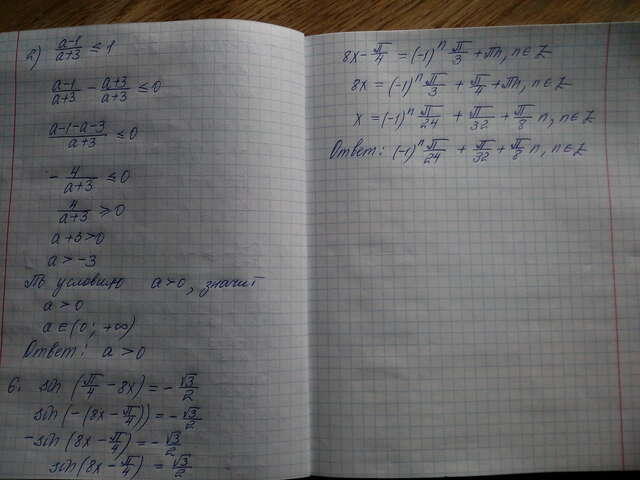 2) (a-1)/(a+3) ≤ 1
(a-1)/(a+3) - (a+3)/(a+3) ≤ 0
(a-1-a-3)/(a+3) ≤ 0
- 4/(a+3) ≤ 0
4/(a+3) ≥ 0
a+3>0
a > -3
По условию a>0, значит
a > 0
a ∈ (0; +∞)
Ответ: a > 0
6. sin (π/4 - 8x) = - √3/2
sin (-(8x - π/4)) = - √3/2
- sin (8x - π/4) = - √3/2
sin (8x - π/4) = √3/2
8x - π/4 = (-1)ⁿ π/3 + πn, n ∈ Z
8x = (-1)ⁿ π/3 + π/4 + πn, n ∈ Z
x = (-1)ⁿ π/24 + π/32 + π/8 n, n ∈ Z
Ответ: (-1)ⁿ π/24 + π/32 + π/8 n, n ∈ Z